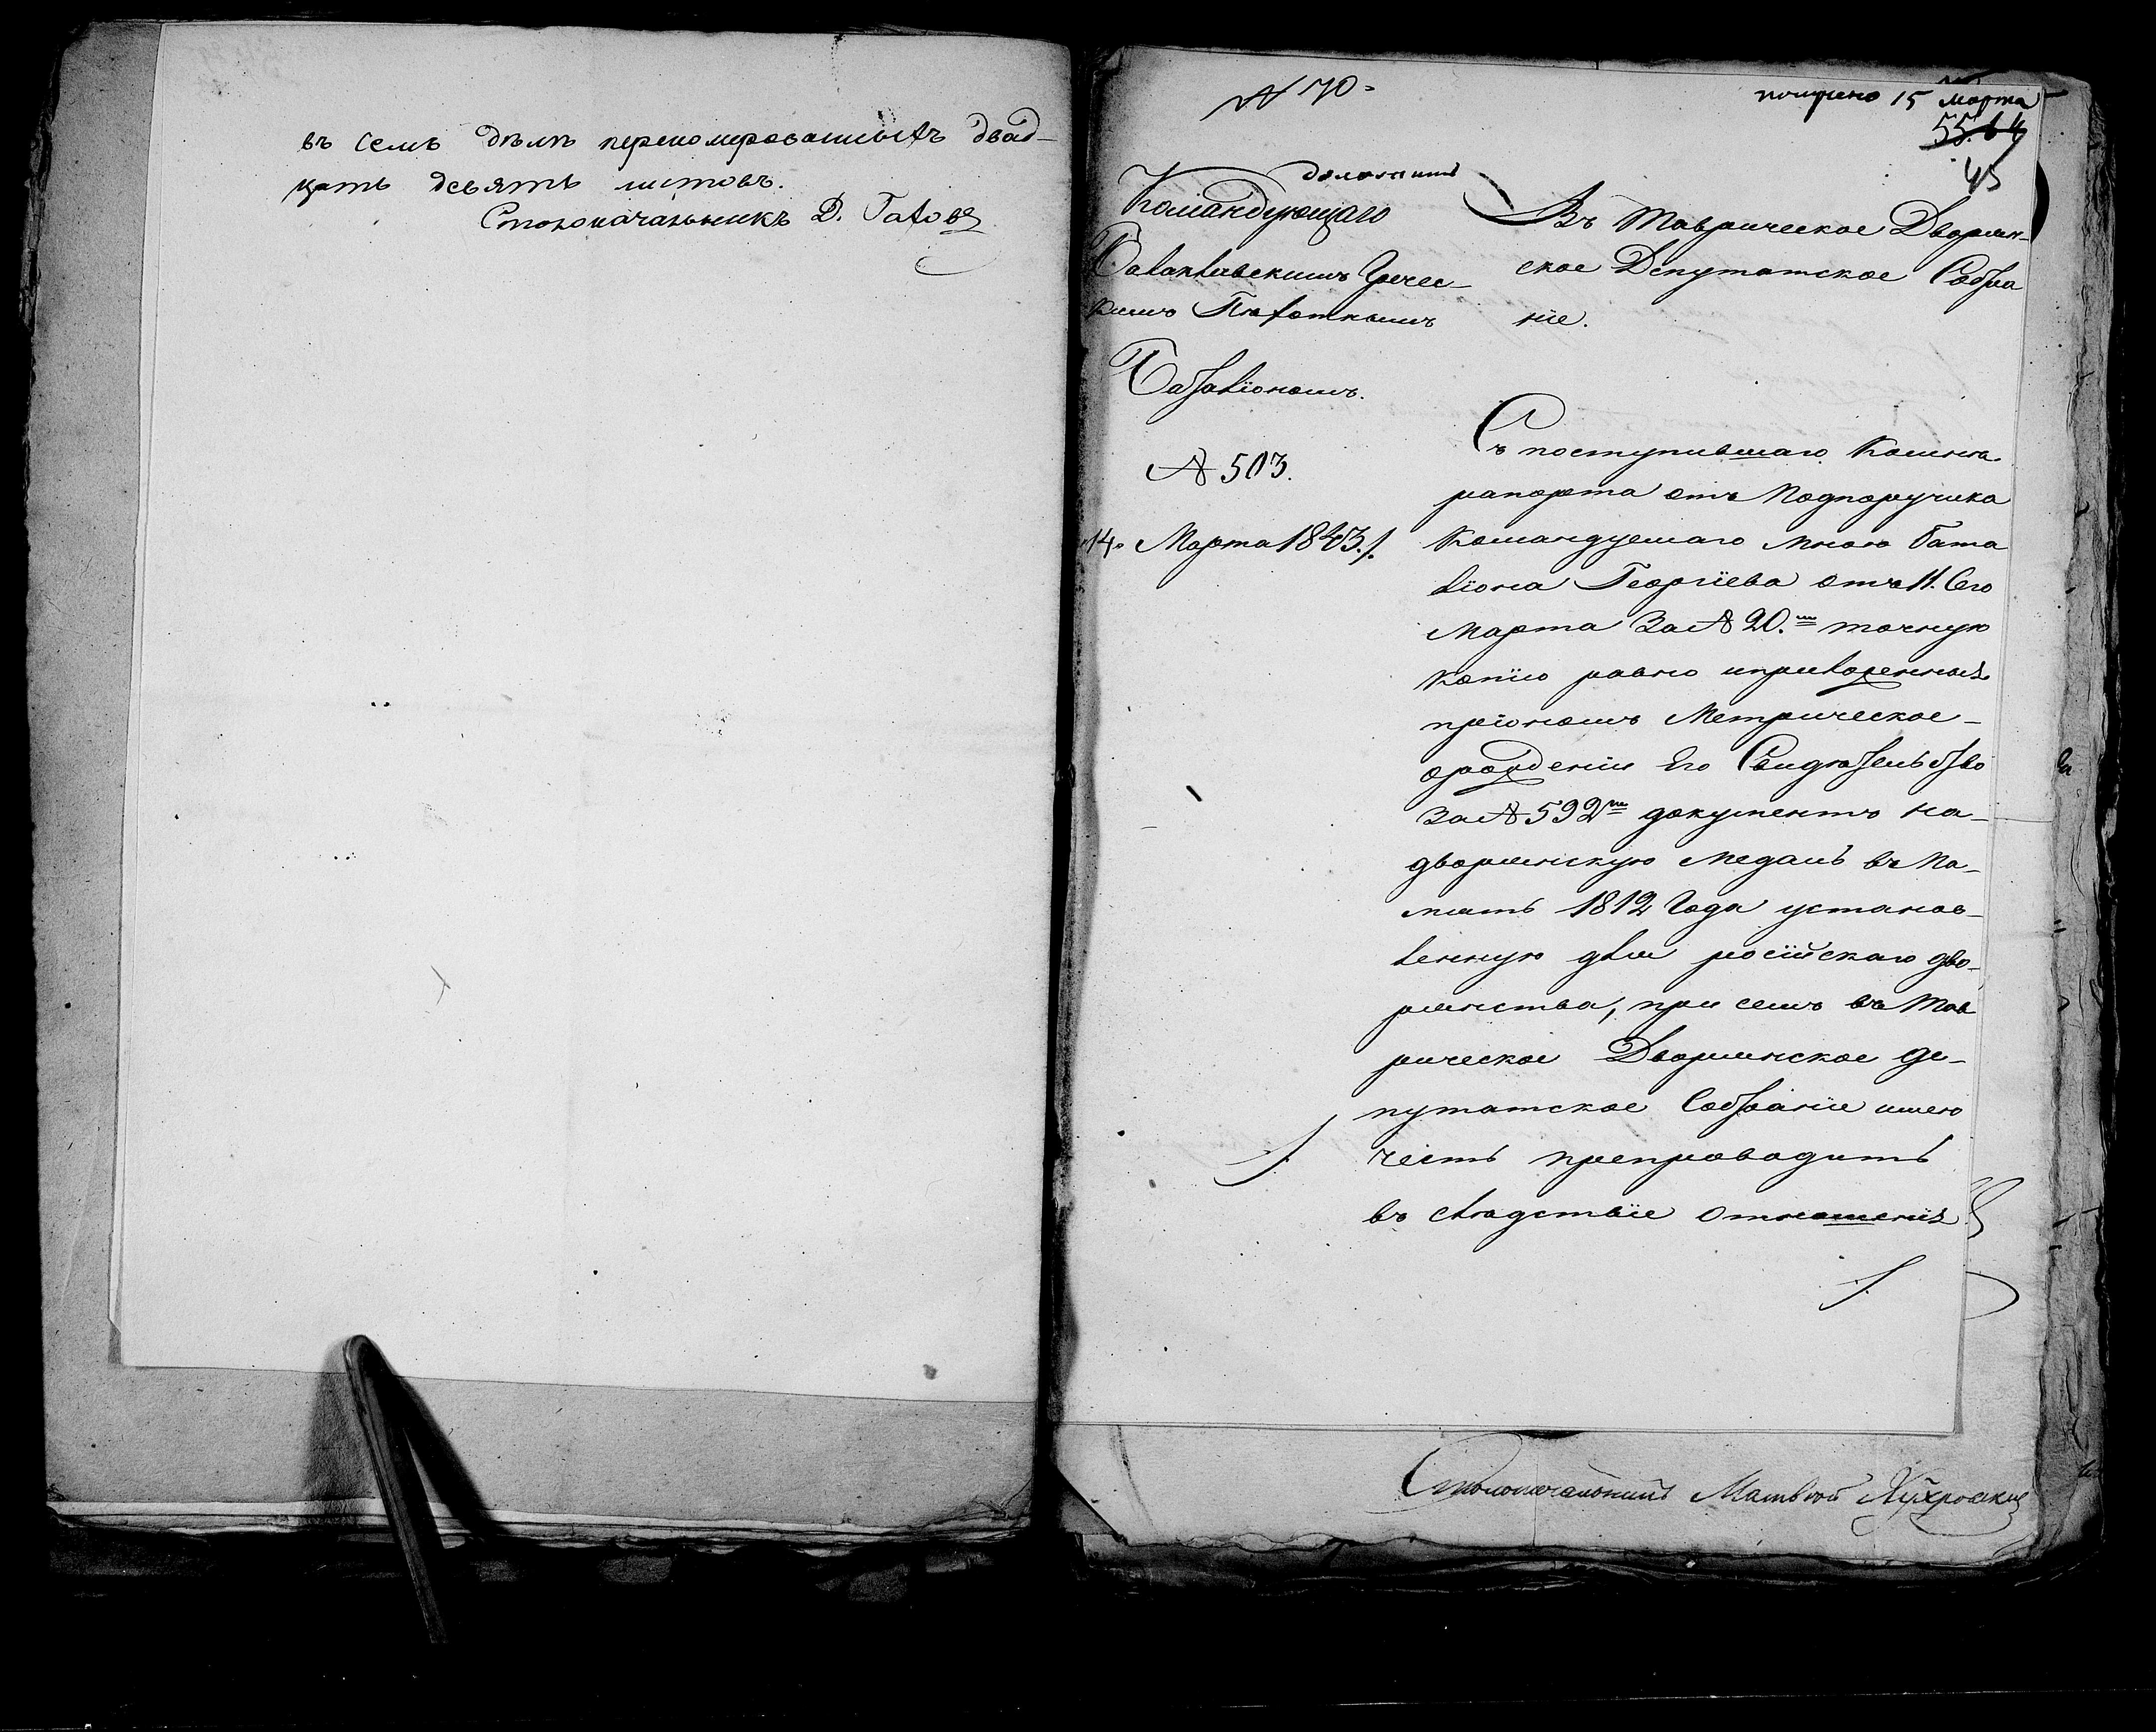 въ семъ дѣлѣ перенумерованныхъ двад-
цать девять листовъ.
Столоначальникъ Д.
№ 70.
получено 15 марта
55. 64
45
доложить
Командующаго
Балаклавскимъ Гречес-
кимъ Пѣхотнымъ
Баталіономъ.
№ 503.
14. Марта 1843.
Въ Таврическое Дворян-
ское Депутатское Собра
ніе.
Съ поступившаго Комнѣ
рапорта отъ Подпоручика
Командуемаго мною Бата
ліона Георгіева отъ 11. Сего
Марта За № 20.мъ точную
копію равно и приложенныя
пріономъ Метрическое
орожденіи Его Свидѣтельство
За № 592мъ документъ на-
дворянскую медаль въ па-
мять 1812 Года установ-
ленную для россійскаго дво-
рянства, при семъ въ Тав
рическое Дворянское де-
путатское Собраніе имею
честь препроводить
въ слѣдствіе отношенія
Столоначальникъ Матвѣй